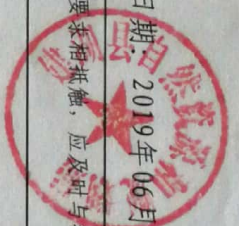 日期：2019年06月
要求相抵触，应及时与
自然资源